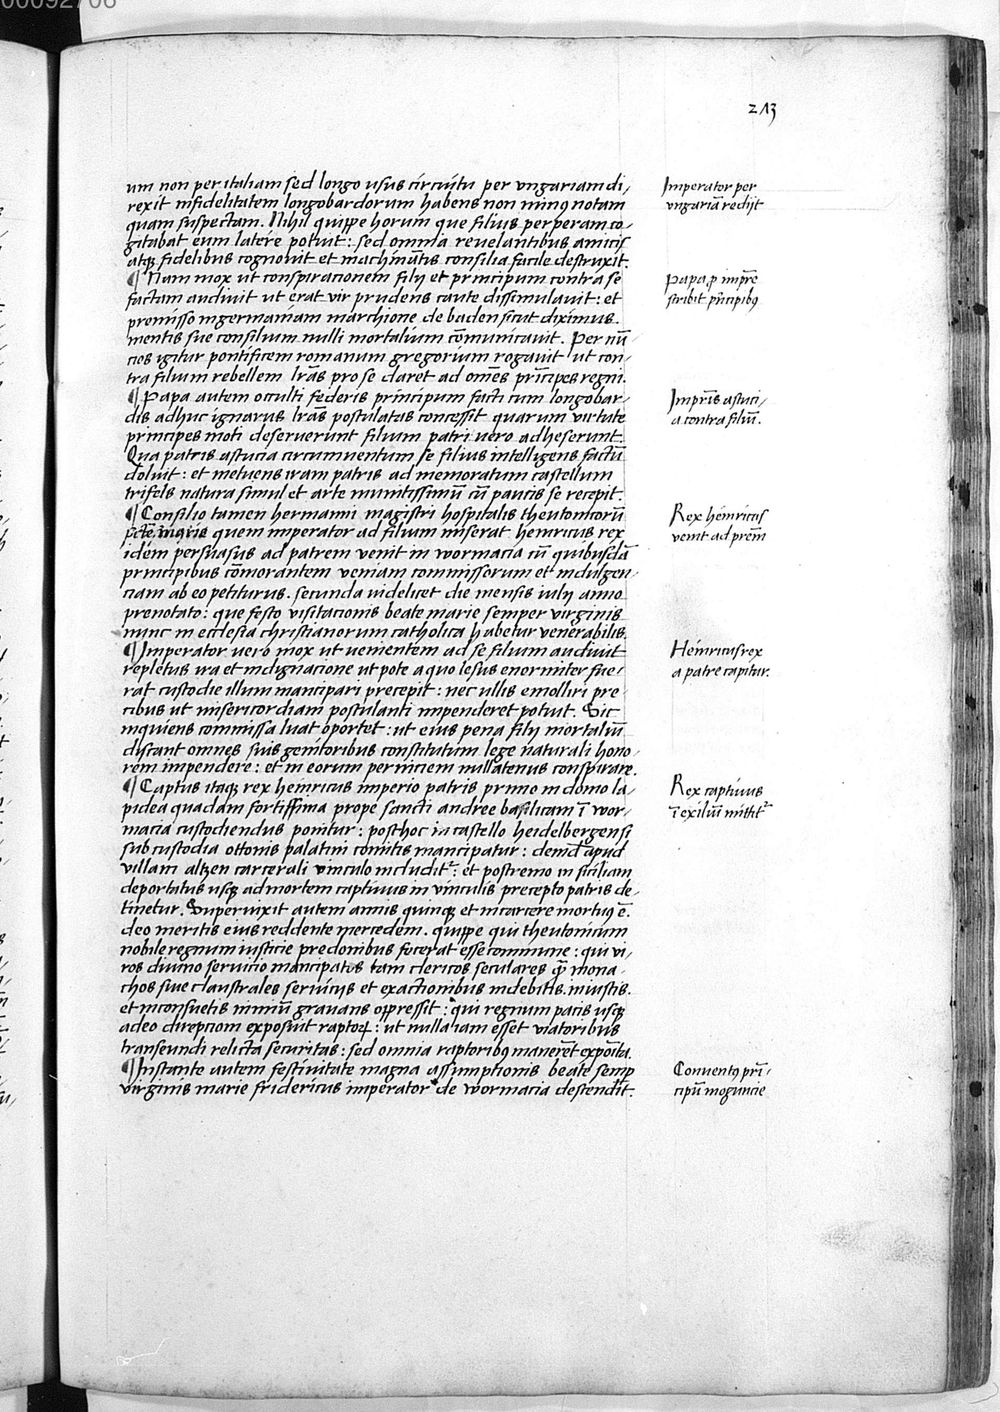 00092706
213
um non per italiam sed longo usus circuitu per vngariam di/
rexit infidelitatem longobardorum habens non minꝰ notam
quam suspectam. Nihil quippe horum que filius perperam co/
gitabat eum latere potuit: sed omnia reuelantibus amicis
atqꝫ fidelibus cognouit et machinatus consilia facile destruxit.
¶ Nam mox ut conspirationem filij et principum contra se
factam audiuit ut erat vir prudens caute dissimulauit: et
premisso in germaniam marchione de baden sicut diximus
mentis sue consilium nulli mortalium cōmunicauit. Per nū/
cios igitur pontificem romanum gregorium rogauit ut con/
tra filium rebellem lrās pro se daret ad omēs prīcipes regni.
¶ Papa autem occulti federis principum facti cum longobar/
dis adhuc ignarus lrās postulatas concessit quarum virtute
principes moti deseruerunt filium patri uero adheserunt.
Qua patris astucia circumuentum se filius intelligens factū
doluit: et metuens iram patris ad memoratum castellum
trifels natura simul et arte munitissimū cū paucis se recepit.
¶ Consilio tamen hermanni magistri hospitalis theutonicorū
sctē marie quem imperator ad filium miserat henricus rex
idem persuasus ad patrem venit in wormacia cū quibusdā
principibus cōmorantem veniam commissorum et indulgen/
ciam ab eo petiturus. secunda uidelicet die mensis iulij anno
prenotato: que festo visitacionis beate marie semper virginis
nunc in ecclesia christianorum catholica habetur venerabilis.
¶ Imperator uero mox ut uenientem ad se filium audiuit
repletus ira et indignacione ut pote a quo lesus enormiter fue/
rat custodie illum mancipari precepit: nec ullis emolliri pre/
cibus ut misericordiam postulanti impenderet potuit. Sic
inquiens commissa luat oportet: ut eius pena filij mortaliū
discant omnes suis genitoribus constitutum lege naturali hono/
rem impendere: et in eorum perniciem nullatenus conspirare.
¶ Captus itaqꝫ rex heinricus imperio patris primo in domo la/
pidea quadam fortissima prope sancti andree basilicam ī wor/
macia custodiendus ponitur: posthoc in castello heidelbergensi
sub custodia ottonis palatini comitis mancipatur: demū apud
villam altzen carcerali vinculo includit᷑: et postremo in siciliam
deportatus usqꝫ ad mortem captiuus in vinculis precepto patris de/
tinetur. Superuixit autem annis quinqꝫ et in carcere mortuꝰ ē.
deo meritis eius reddente mercedem. quippe qui theutonicum
nobile regnum iusticie predonibus fecerat esse commune: qui vi/
ros diuino seruicio mancipatos tam clericos seculares q̄ mona/
chos siue claustrales seruicijs et exactionibus indebitis. iniustis.
et inconsuetis nimiū grauans oppressit: qui regnum pacis usqꝫ
adeo direpcioni exposuit raptoꝝ: ut nulla iam esset viatoribus
transeundi relicta securitas: sed omnia raptoribꝰ manerēt exposita.
¶ Instante autem festiuitate magna assumptionis beate semp
virginis marie fridericus imperator de wormacia descendit.
Imperator per
vngariā redijt
Papa ꝓ impre
scribit prīcipibꝰ
Imprīs astuci/
a contra filiū.
Rex heinricus
venit ad prēm
Heinricus rex
a patre capitur.
Rex captiuus
ī exiliū mittit᷑
Conuentꝰ prī/
cipū moguncie